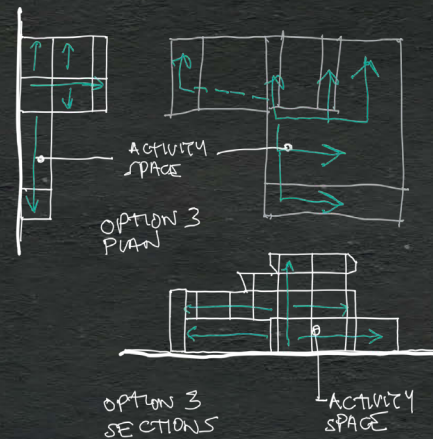 ACTIVITY
SPACE
OPTION 3
PLAN
OPTION 3
SECTIONS
ACTIVITY
SPACE